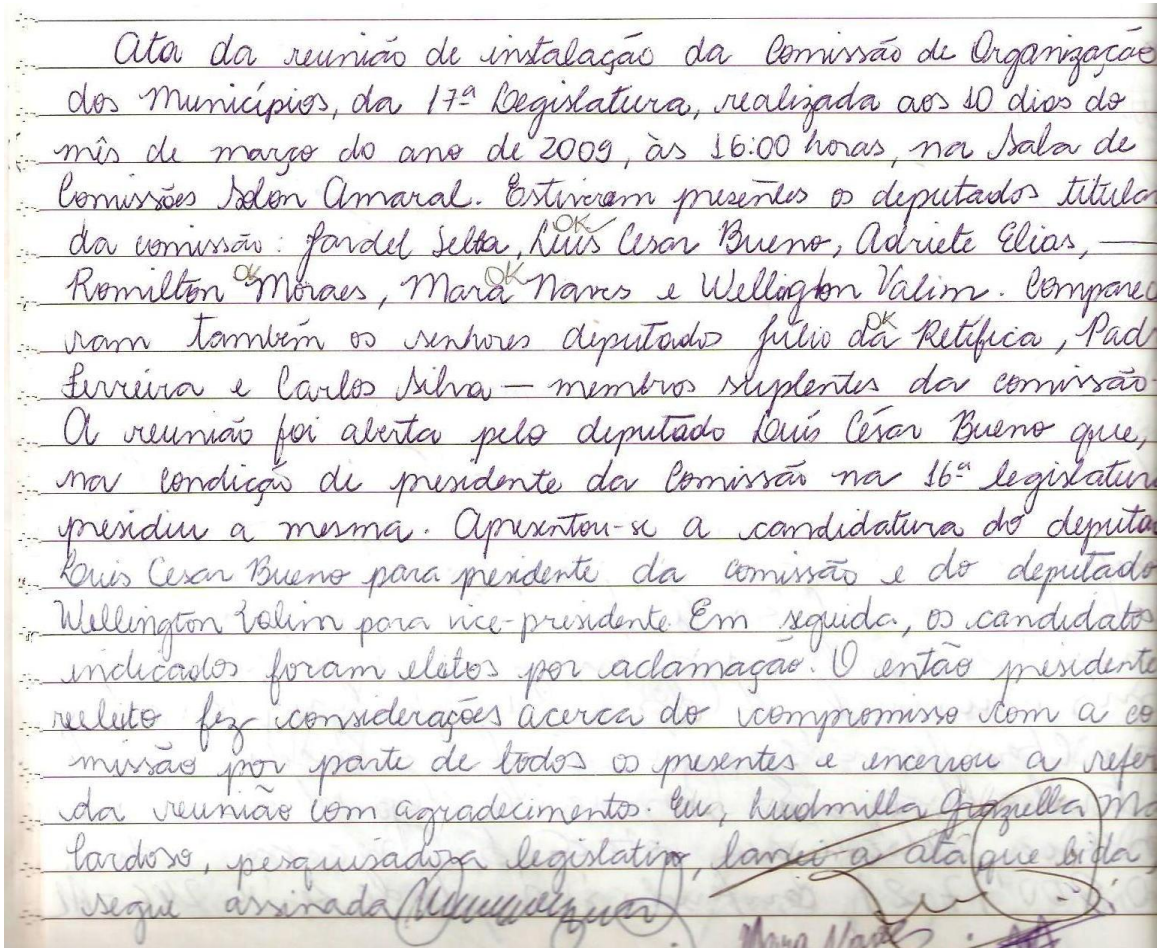 Ata da reunião de instalação da Comissão de Organização
dos Municípios, da 17ª Legislatura, realizada aos 10 dias do
mês de março do ano de 2009, às 16:00 horas, na Sala de
Comissões Solon Amaral. Estiveram presentes os deputados titula
OK
da comissão: Jardel Sebba, Luis Cesar Bueno, Adriete Elias, —
OK OK
Romilton Moraes, Mara Naves e Wellington Valim. Comparec
OK
ram também os senhores deputados Júlio da Retífica, Pad
Ferreira e Carlos Silva — membros suplentes da comissão
A reunião foi aberta pelo deputado Luís César Bueno que,
na condição de presidente da Comissão na 16ª legislatura
presidiu a mesma. Apresentou-se a candidatura do deputa
Luis Cesar Bueno para presidente da comissão e do deputado
Wellington Valim para vice-presidente. Em seguida, os candidatos
indicados foram eleitos por aclamação. O então presidente
reeleito fez considerações acerca do compromisso com a co
missão por parte de todos os presentes e encerrou a refer
da reunião com agradecimentos. Eu, Ludmilla Graziella M
Cardoso, pesquisadora legislativo, lavrei a ata que lida
segue assinada
Mara Naves